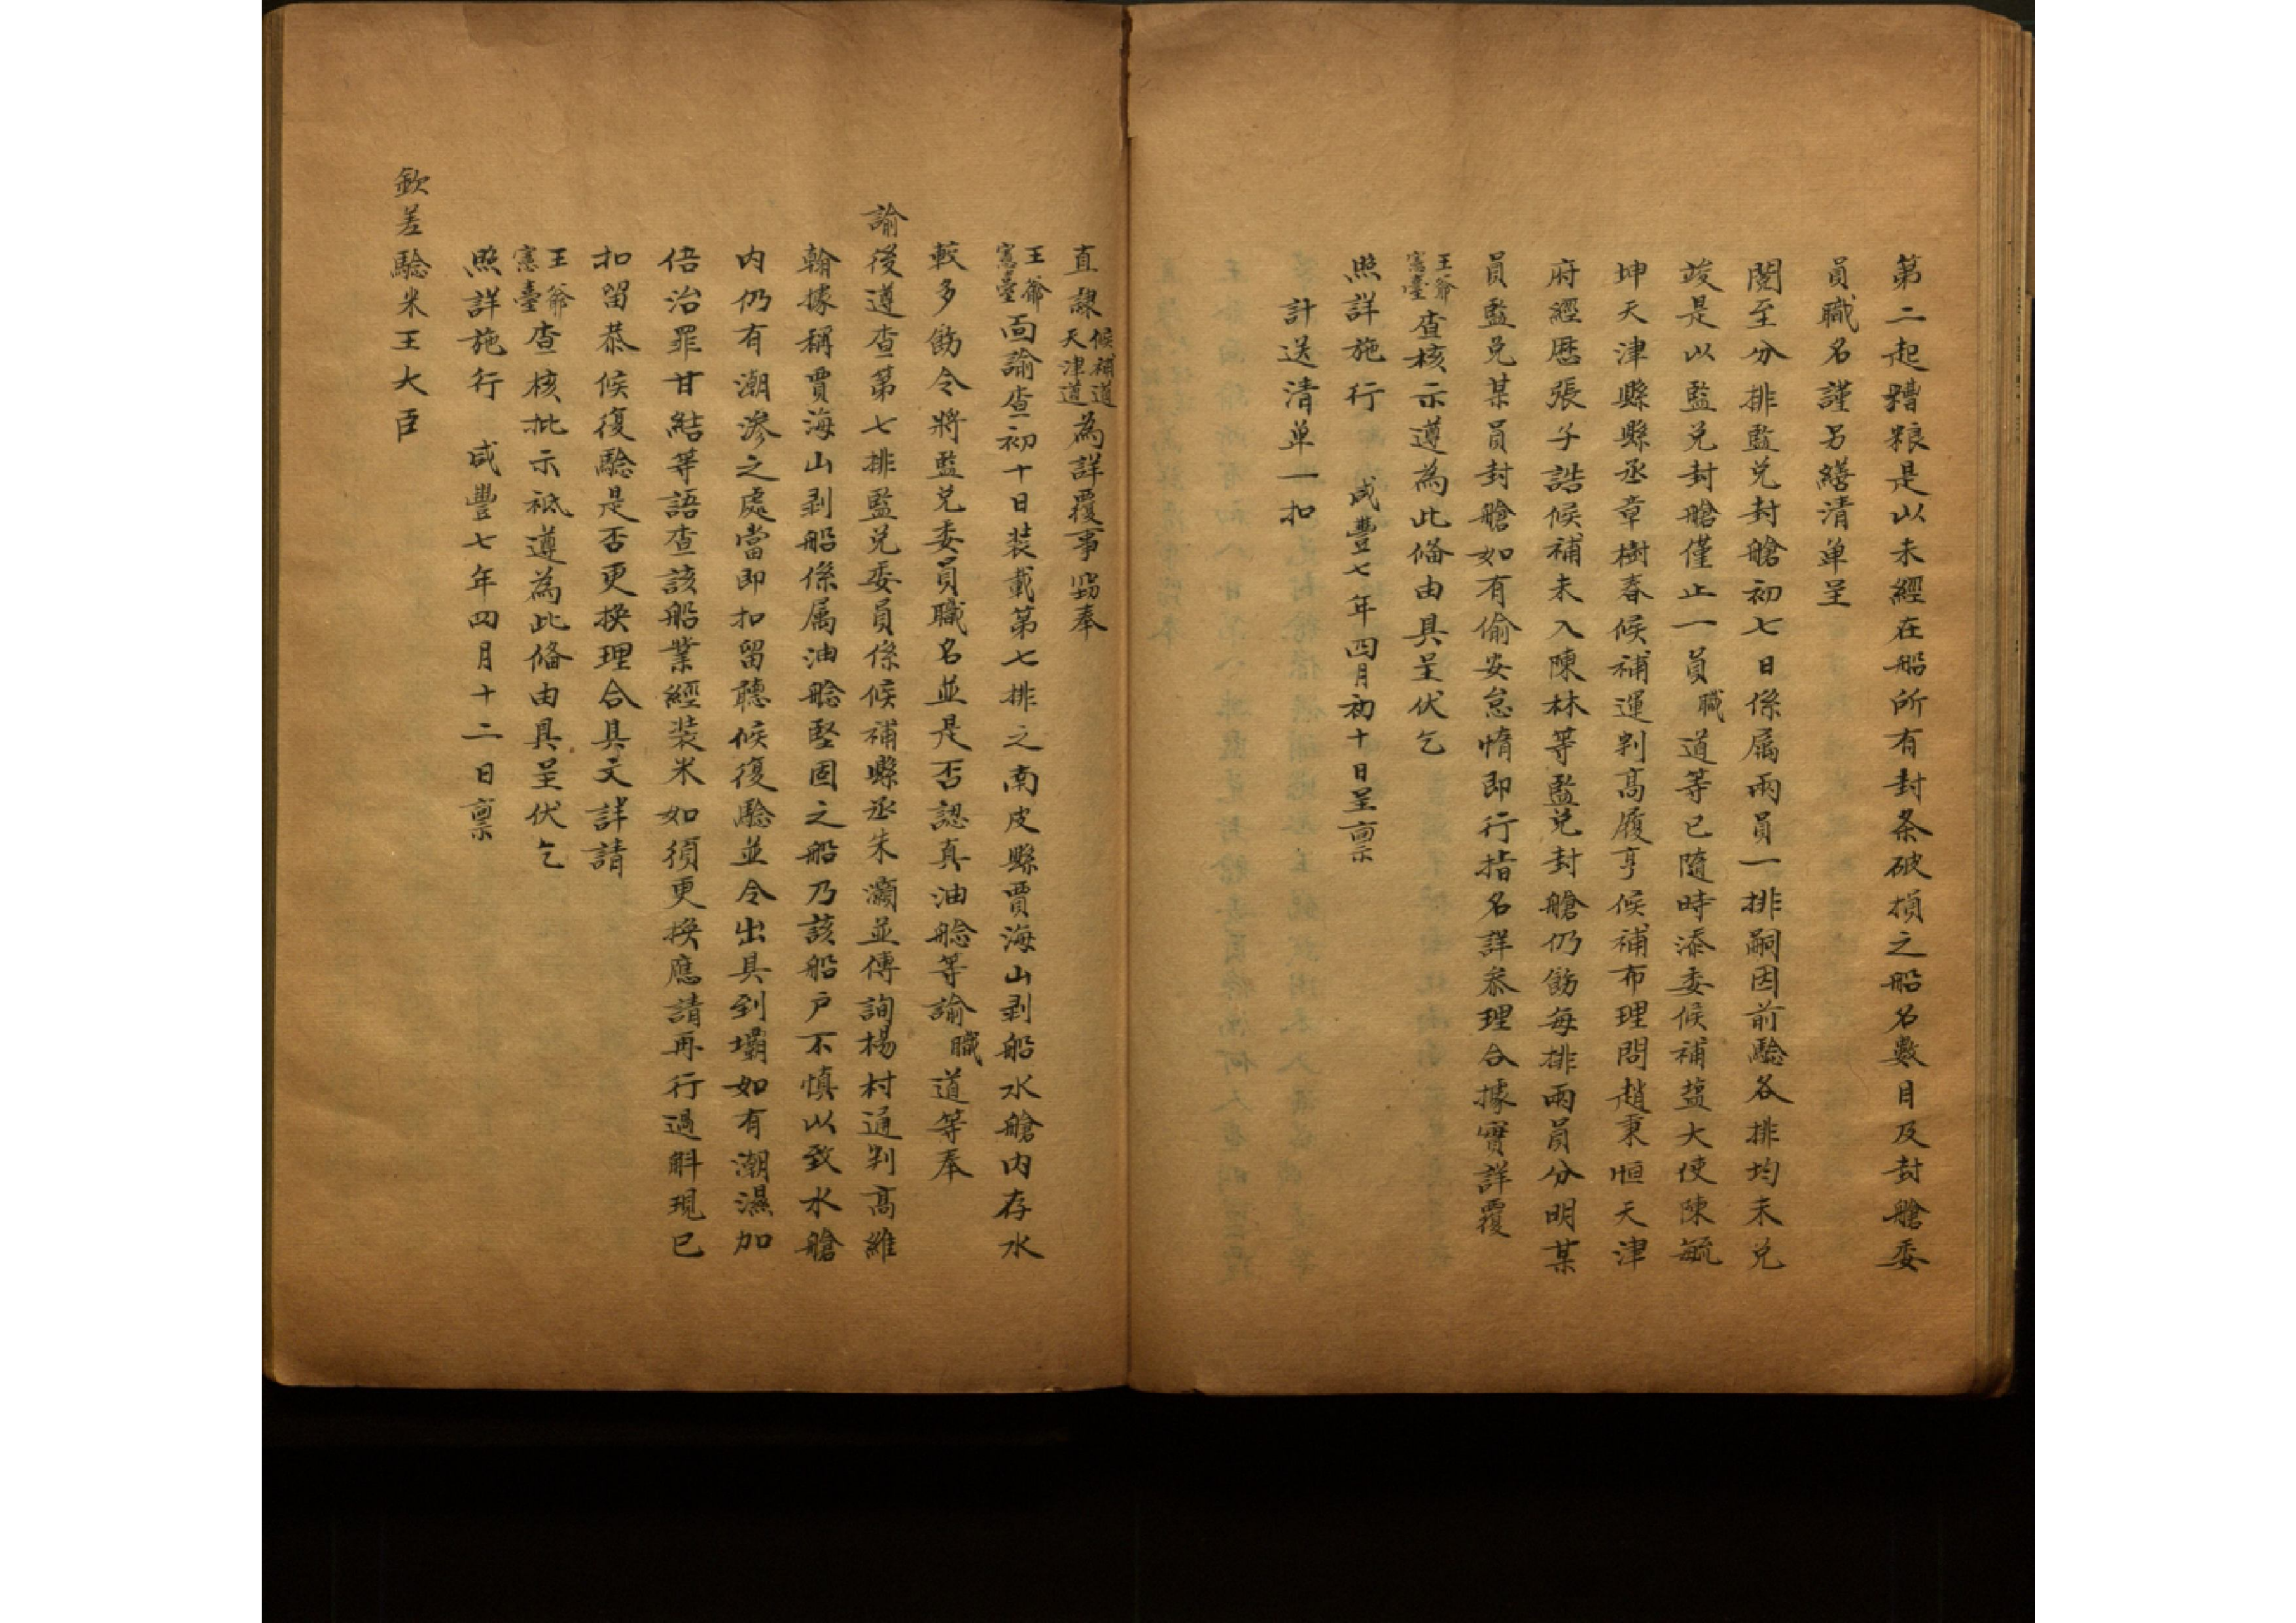 第二起糟粮是以未經在船所有封条破損之船名數目及封艙委
員職名謹另繕清单呈
閱至分排監兑封艙初七日係属兩員一排嗣因前驗各排均未兑
竣是以監兑封艙僅止一員職道等已隨時添委候補盐大使陳毓
坤天津縣縣丞章樹春候補運判高履亨候補布理問趙秉恒天津
府經歷張子誥候補未入陳林等監兑封艙仍飭每排兩員分明某
員監兑某員封艙如有偷安怠惰即行指名詳叅理合據實詳覆
王爺憲臺查核示遵為此俻由具呈伏乞
照詳施行 咸豐七年四月初十日呈稟
計送清单一扣
直隸候補道天津道為詳覆事竊奉
王爺憲臺面諭查初十日装載第七排之南皮縣賈海山剥船水艙内存水
較多飭令將監兑委員職名並是否認真油艌等諭職道等奉
諭後遵查第七排監兑委員係候補縣丞朱灝並傳詢楊村通判高維
翰據稱賈海山剥船係属油艌堅固之船乃該船户不慎以致水艙
内仍有潮渗之處當即扣留聽候復驗並令出具到壩如有潮濕加
倍治罪甘結等語查該船業經装米如須更换應請再行過斛現已
扣留恭候復驗是否更换理合具文詳請
王爺憲臺查核批示祗遵為此俻由具呈伏乞
照詳施行 咸豐七年四月十二日稟
欽差驗米王大臣